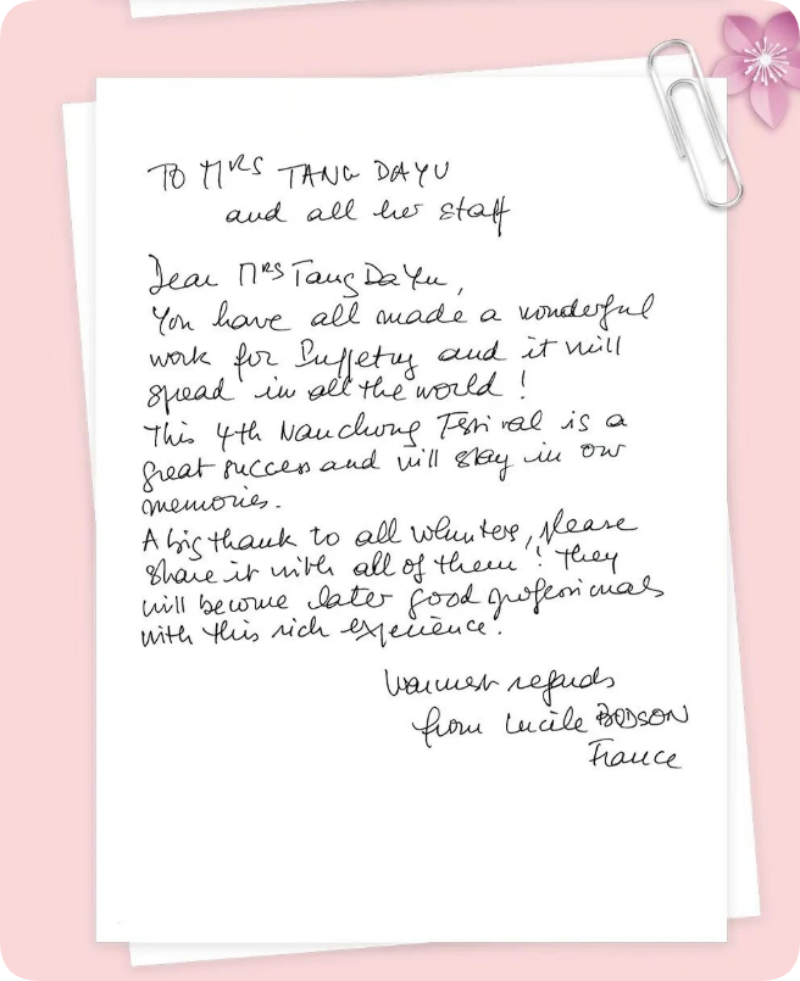 TO MRS TANG DAYU
and all her staff
Dear MRS Tang Da Yu,
You have all made a wonderful
work for Puppetry and it will
spread in all the world !
This 4th Nanchong Festival is a
great success and will stay in our
memories.
A big thank to all volunteers, please
share it with all of them ! They
will become later good professionals
with this rich experience.
Warmest regards
from Lucile BODSON
France